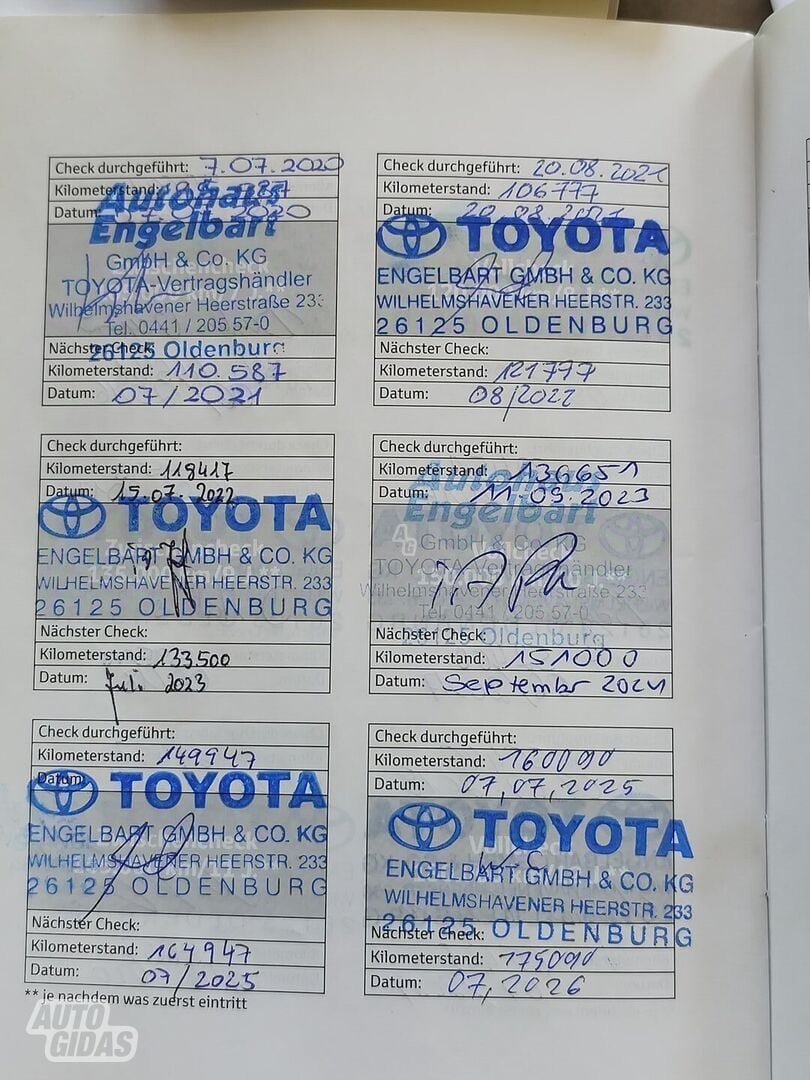 Check durchgeführt: 7.07.2020
Kilometerstand:
Datum: 2020
Autohaus
Engelbart
GmbH & Co. KG
TOYOTA-Vertragshändler
Wilhelmshavener Heerstraße 233
Tel. 0441 / 205 57-0
26125 Oldenburg
Nächster Check:
Kilometerstand: 110.587
Datum: 07/2021
Check durchgeführt: 20.08.2021
Kilometerstand: 106777
Datum: 20.08.2021
TOYOTA
ENGELBART GMBH & CO. KG
WILHELMSHAVENER HEERSTR. 233
26125 OLDENBURG
Nächster Check:
Kilometerstand: 121777
Datum: 08/2022
Check durchgeführt:
Kilometerstand: 118417
Datum: 15.07.2022
TOYOTA
ENGELBART GMBH & CO. KG
WILHELMSHAVENER HEERSTR. 233
26125 OLDENBURG
Nächster Check:
Kilometerstand: 133500
Datum: Juli 2023
Check durchgeführt:
Kilometerstand: 136651
Datum: 11.09.2023
Autohaus
Engelbart
GmbH & Co. KG
TOYOTA-Vertragshändler
Wilhelmshavener Heerstraße 233
Tel. 0441 / 205 57-0
26125 Oldenburg
Nächster Check:
Kilometerstand: 151000
Datum: September 2024
Check durchgeführt:
Kilometerstand: 149947
Datum:
TOYOTA
ENGELBART GMBH & CO. KG
WILHELMSHAVENER HEERSTR. 233
26125 OLDENBURG
Nächster Check:
Kilometerstand: 164947
Datum: 07/2025
Check durchgeführt:
Kilometerstand: 160090
Datum: 07,07,2025
TOYOTA
ENGELBART GMBH & CO. KG
WILHELMSHAVENER HEERSTR. 233
26125 OLDENBURG
Nächster Check:
Kilometerstand: 175090
Datum: 07,2026
** je nachdem was zuerst eintritt
AUTO
GIDAS